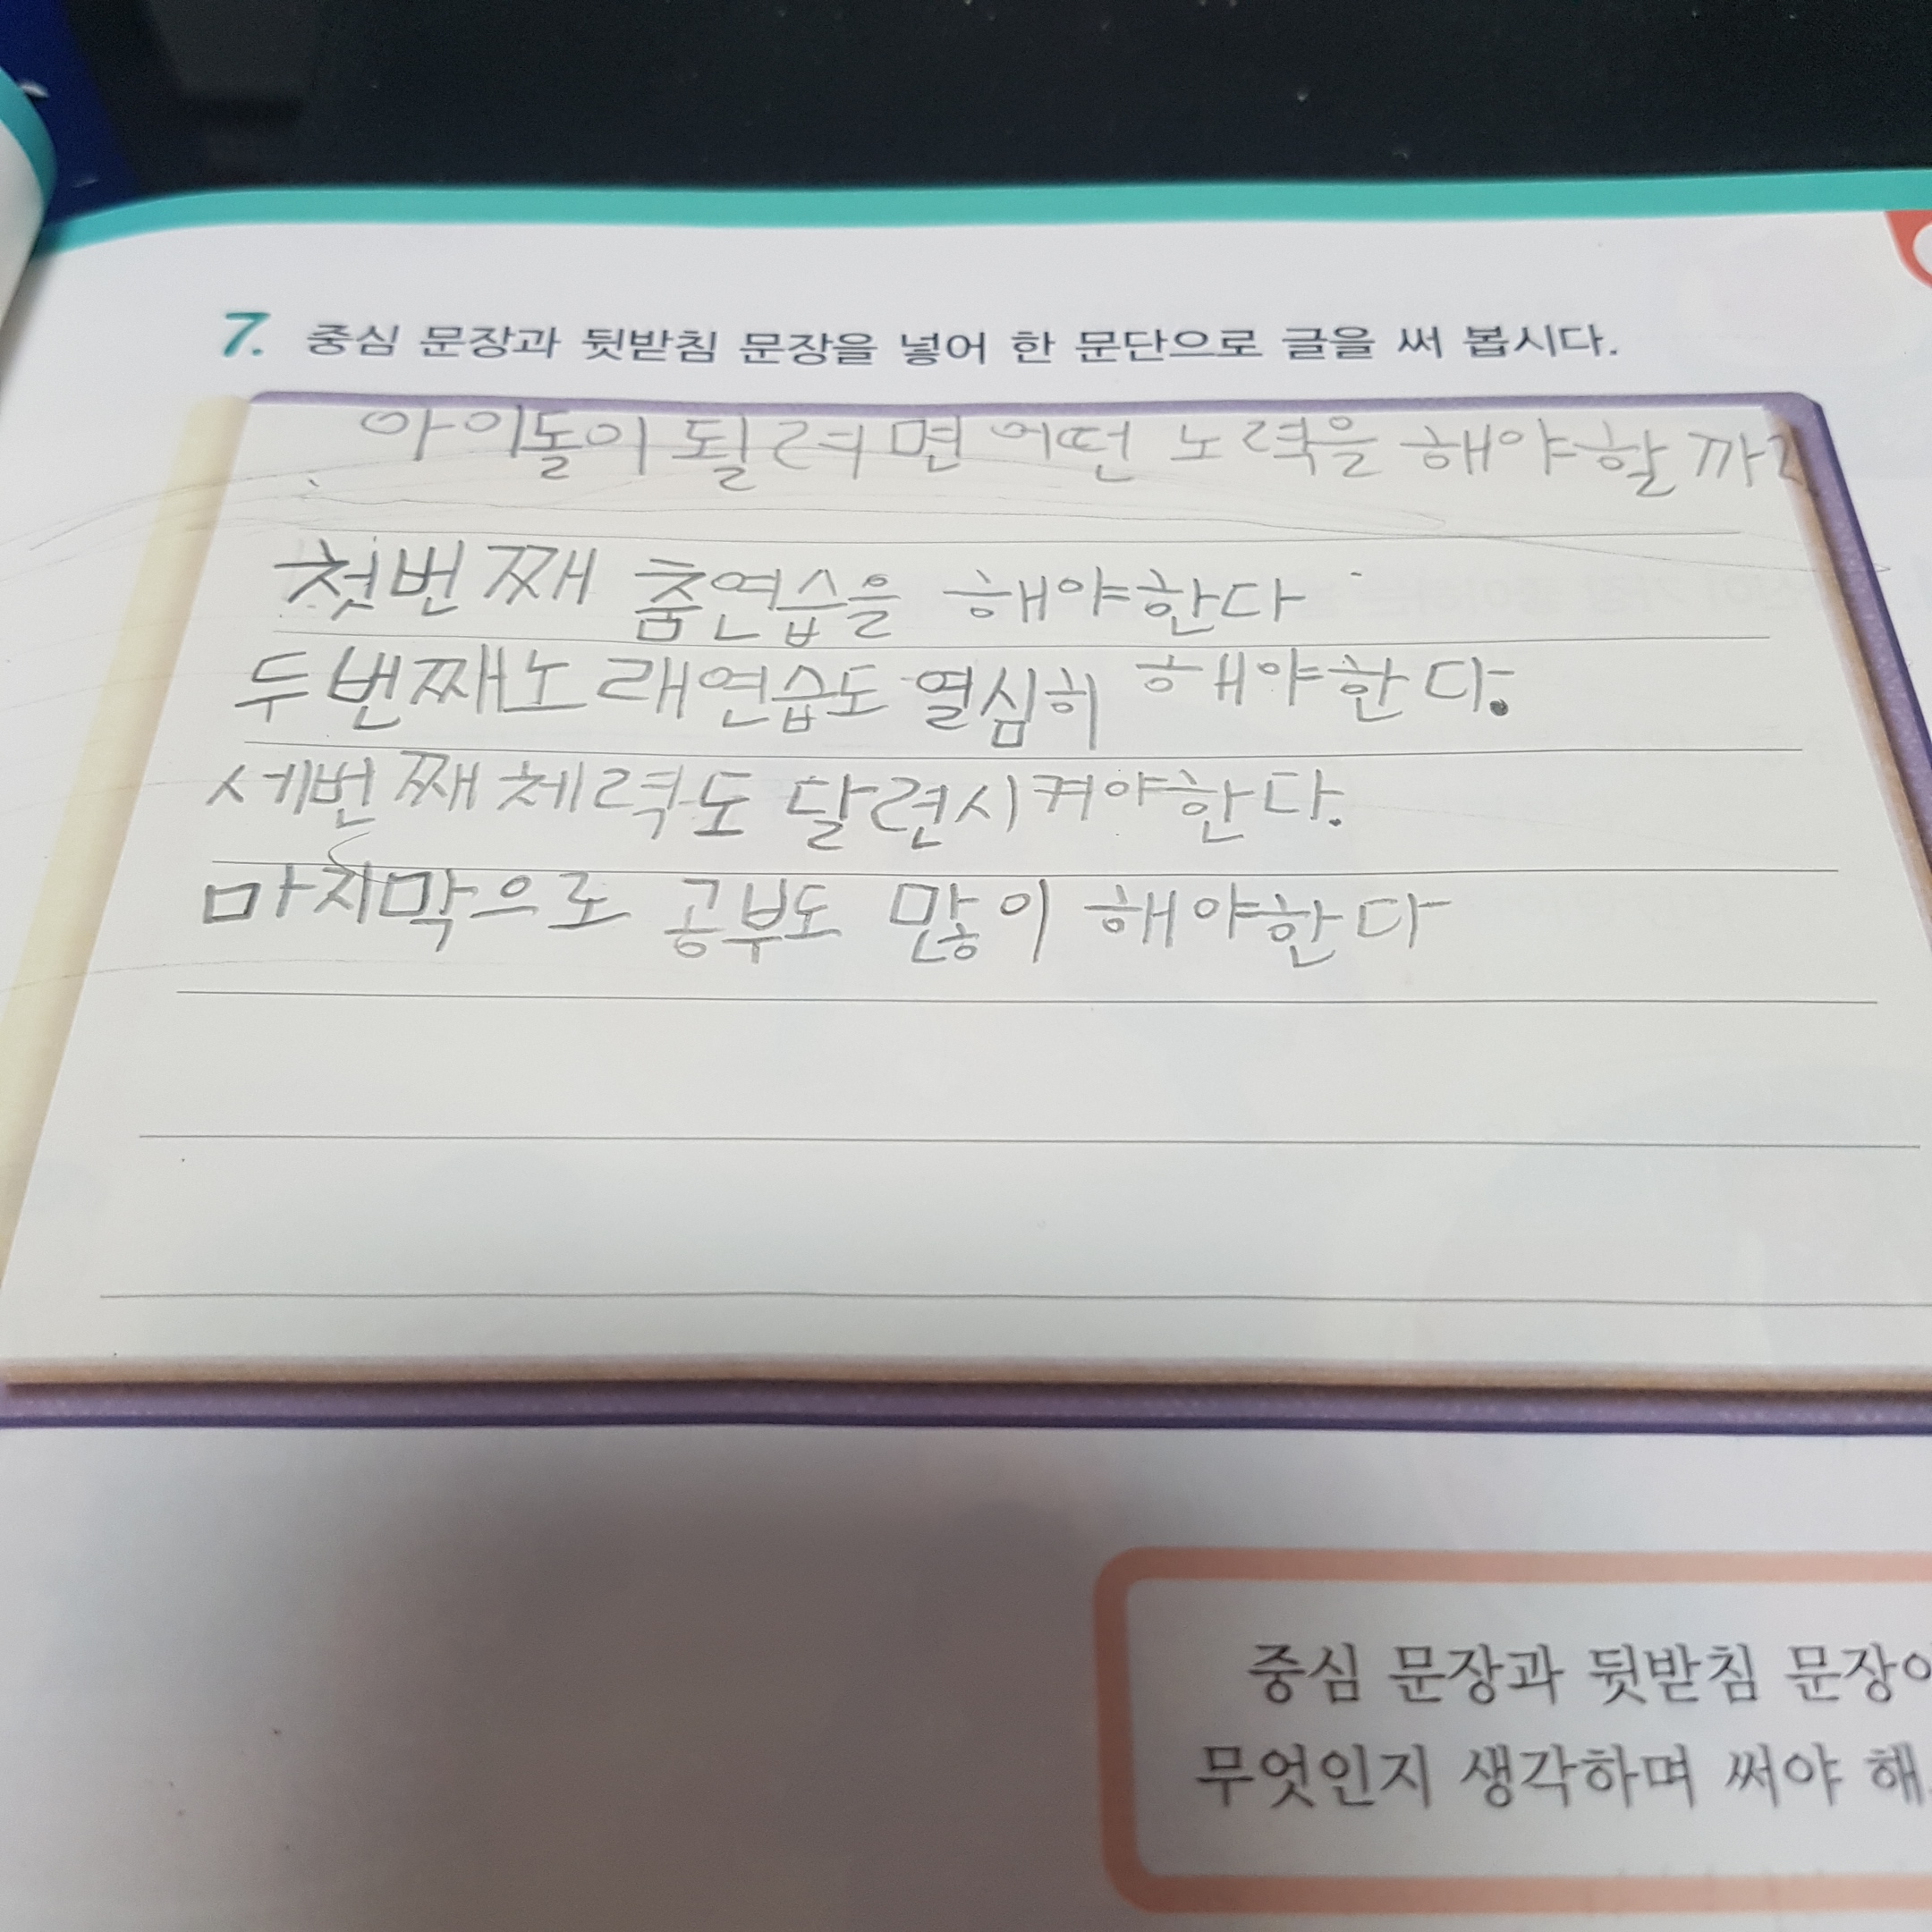 7. 중심 문장과 뒷받침 문장을 넣어 한 문단으로 글을 써 봅시다.
아이돌이 될려면 어떤 노력을 해야할까?
첫번째 춤연습을 해야한다
두번째노래연습도 열심히 해야한다.
세번째체력도 달련시켜야한다.
마지막으로 공부도 많이 해야한다
중심 문장과 뒷받침 문장이
무엇인지 생각하며 써야 해.